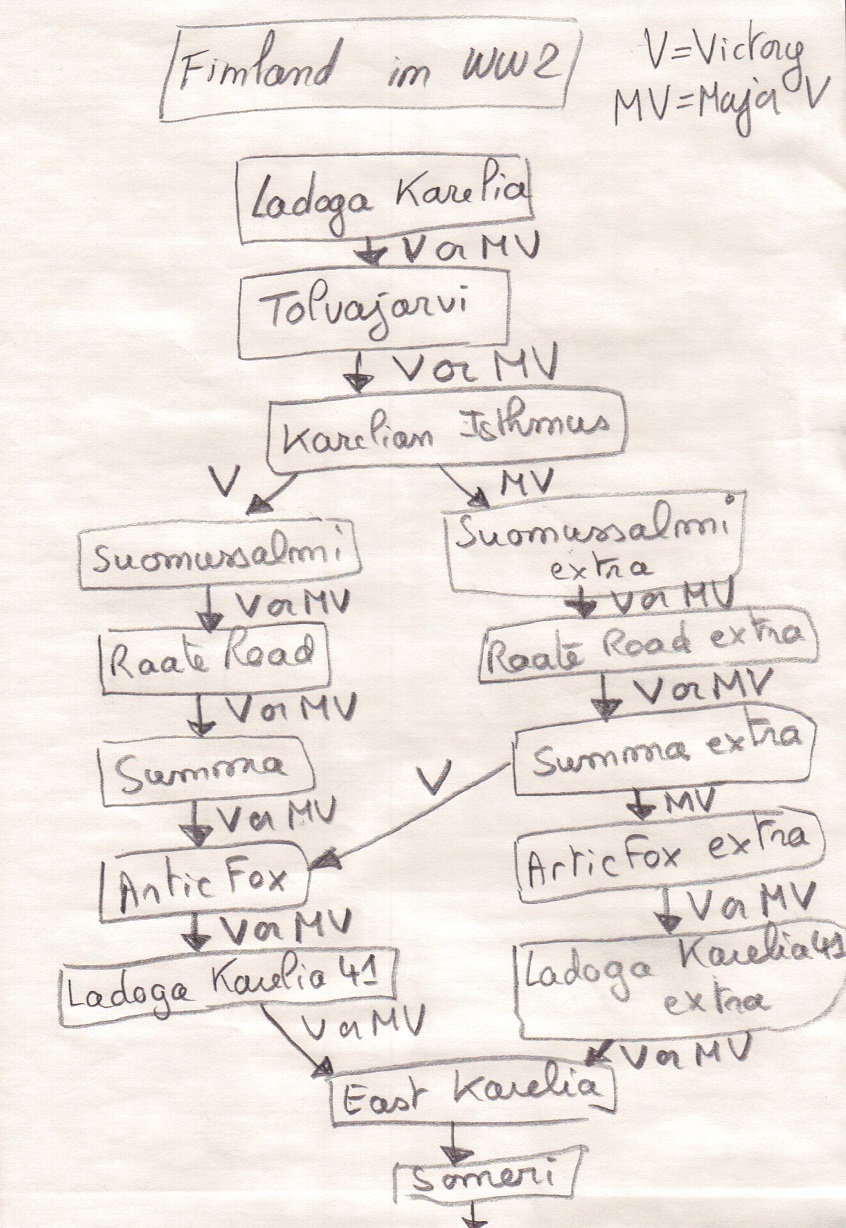 Finland in WW2
V=Victory
MV=Major V
Ladoga Karelia
V or MV
Tolvajarvi
V or MV
Karelian Isthmus
V
MV
Suomussalmi
Suomussalmi
extra
V or MV
V or MV
Raate Road
Raate Road extra
V or MV
V or MV
Summa
Summa extra
V
V or MV
MV
Artic Fox
Artic Fox extra
V or MV
V or MV
Ladoga Karelia 41
Ladoga Karelia 41
extra
V or MV
V or MV
East Karelia
Someri